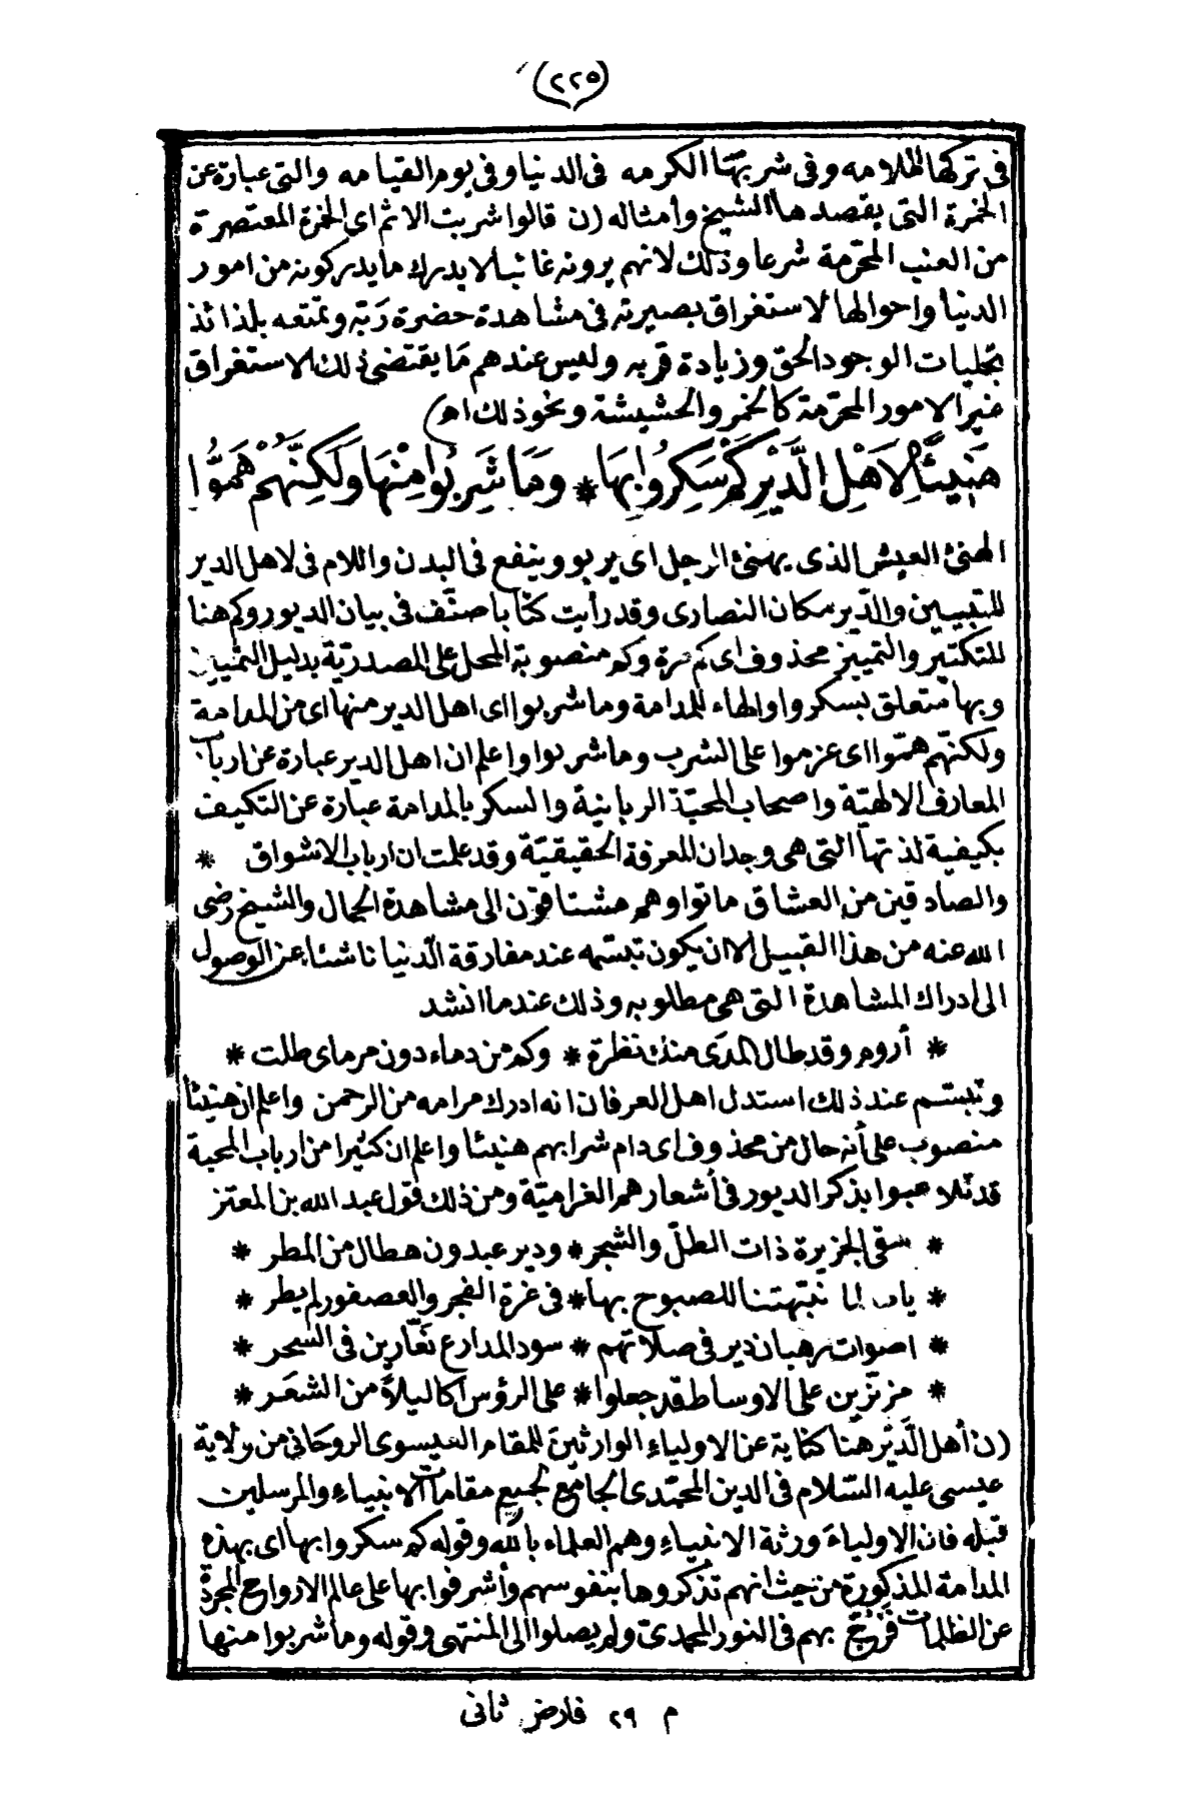 (٢٢٥)
فى تركها الملامه وفى شربها الكرمه فى الدنيا وفى يوم القيامه والتى عبارة عن
الخمرة التى يقصدها الشيخ وأمثاله (ن قالوا شربت الاثم اى الخمرة المعتصرة
من العنب المحرّمة شرعا وذلك لانهم يرونه غائبا لا يدرك ما يدركونه من امور
الدنيا واحوالها لاستغراق بصيرته فى مشاهدة حضرة ربّه وتمتعه بلذائذ
تجليات الوجود الحق وزيادة قربه وليس عندهم مَا يقتضى ذلك الاستغراق
غير الامور المحرّمة كالخمر والحشيشة ونحو ذلك اهـ)
هَنِيئًا لِاَهْلِ الدَّيْرِ كَمْ سَكِرُوا بِهَا * وَمَا شَرِبُوا مِنْهَا وَلَكِنَّهُمْ هَمَوُّا
الهنئ العيش الذى يهنئ الرجل اى يربو وينفع فى البدن واللام فى لاهل الدير
للتبيين والدّير مكان النصارى وقد رأيت كتابا صنّف فى بيان الديور وكم هنا
للتكثير والتمييز محذوف اى كم مرة وكم منصوبة المحل على المصدريّة بدليل التمييز
وبها متعلق بسكروا والهاء للمدامة وما شربوا اى اهل الدير منها اى من المدامة
ولكنّهم همّوا اى عزموا على الشرب وما شربوا واعلم ان اهل الدير عبارة عن ارباب
المعارف الالهيّة واصحاب المحبّة الربانية والسكر بالمدامة عبارة عن التكيف
بكيفية لذتها التى هى وجدان المعرفة الحقيقيّة وقد علمت ان ارباب الاشواق *
والصادقين من العشاق ماتوا وهم مشتاقون الى مشاهدة الجمال والشيخ رضى
الله عنه من هذا القبيل الا ان يكون تبسّمه عند مفارقة الدّنيا ناشئا عن الوصول
الى ادراك المشاهدة التى هى مطلوبه وذلك عندما انشد
* أروم وقد طال المدَى منك نظرة * وكم من دماء دون مرماى طلت *
وتبسّم عند ذلك استدل اهل العرفان انه ادرك مرامه من الرحمن واعلم ان هنيئا
منصوب على أنه حال من محذوف اى دام شرابهم هنيئا واعلم ان كثيرا من ارباب المحبة
قد تلاعبوا بذكر الديور فى أشعارهم الغراميّة ومن ذلك قول عبد الله بن المعتز
* سقى الجزيرة ذات الطلّ والشجر * ودير عبدون هطال من المطر *
* نبّهتنا للصبوح بها * فى غرّة الفجر والعصفور لم يطر *
* اصوات رهبان دير فى صلاتهم * سود المدارع نعّارين فى السّحر *
* مزنّرين على الاوساط قد جعلوا * على الرؤس اكاليلا من الشعَر *
(ن أهل الدَّيْر هنا كناية عن الاولياء الوارثين للمقام العيسوى الروحانى من ولاية
عيسى عليه السّلام فى الدين المحمّدى الجامع لجميع مقامات الانبياء والمرسلين
قبله فان الاولياء ورثة الانبياء وهم العلماء بالله وقوله كم سكروا بها اى بهذه
المدامة المذكورة من حيث انهم تذكروها بنفوسهم وأشرفوا بها على عالم الارواح المجردة
عن الظلمات بهم فى النور المحمدىّ ولم يصلوا الى المنتهى وقوله وما شربوا منها
م ٢٩ فارض ثانى